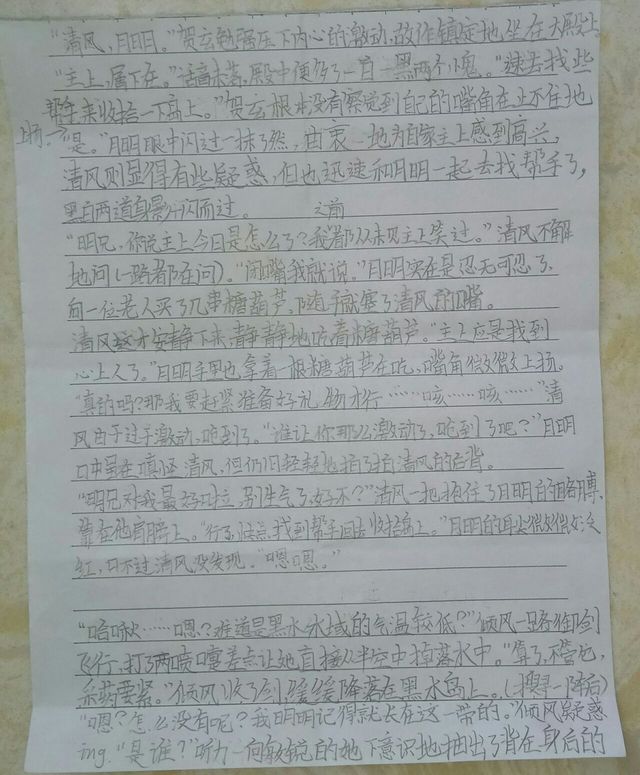 “清风，月明。”贺玄勉强压下内心的激动，故作镇定地坐在大殿上。
“主上，属下在。”话音未落，殿中便多了一白一黑两个小鬼。“速去找些
帮手来收拾一下岛上。”贺玄根本没有察觉到自己的嘴角在止不住地
上扬。→
“是。”月明眼中闪过一抹了然，由衷地为自家主上感到高兴，
清风则显得有些疑惑，但也迅速和明明一起去找帮手了，
黑白两道身影一闪而过。 之前
“明兄，你说主上今日是怎么了？我都从未见主上笑过。”清风不解
地问（一路都在问）。“闭嘴我就说。”月明实在是忍无可忍了，
向一位老人买了几串糖葫芦，随手就塞了清风的嘴。
清风这才安静下来，静静地吃着糖葫芦。“主上应是找到
心上人了。”月明手里也拿着一根糖葫芦在吃，嘴角微微上扬。
“真的吗？那我要赶紧准备好礼物才行……咳……咳……”清
风由于过于激动，呛到了。“谁让你那么激动了，呛到了吧？”月明
口中虽在嗔怪清风，但仍旧轻轻地拍了拍清风的后背。
“明兄对我最好啦，别生气了，好不？”清风一把抱住了月明的胳膊，
靠在他肩膀上。“行了，快点，找到帮手回去收拾岛上。”月明的耳尖微微泛
红，只不过清风没发现。“嗯嗯。”
“哈啾……嗯？难道是黑水水域的气温较低？”倾风一路御剑
飞行，打了两喷嚏差点让她直接从半空中掉落水中。“算了，不管它，
采药要紧。”倾风收了剑，缓缓降落在黑水岛上。（搜寻一阵后）
“嗯？怎么没有呢？我明明记得就长在这一带的。”倾风疑惑
ing。“是谁？”听力一向敏锐的她下意识地抽出了背在身后的